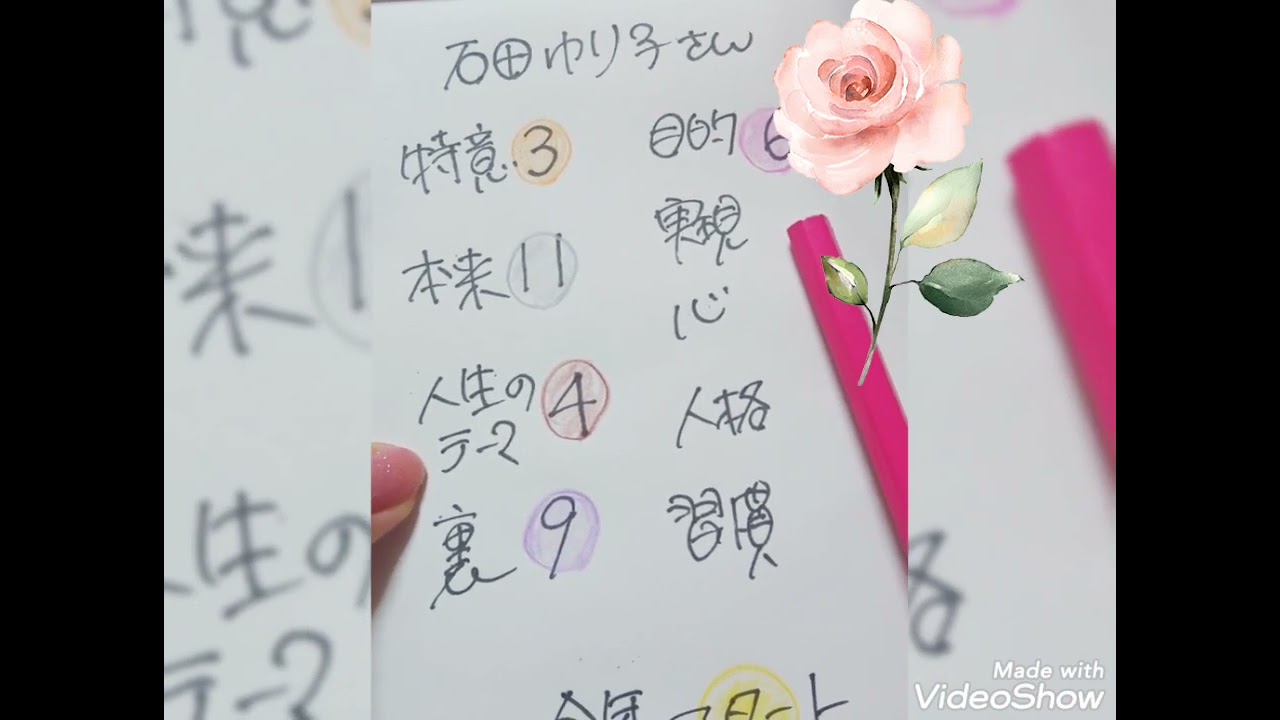 石田ゆり子さん
特意 3
目的 6
本来 11
実現
心
人生の
テーマ 4
人格
裏 9
習慣
Made with
VideoShow